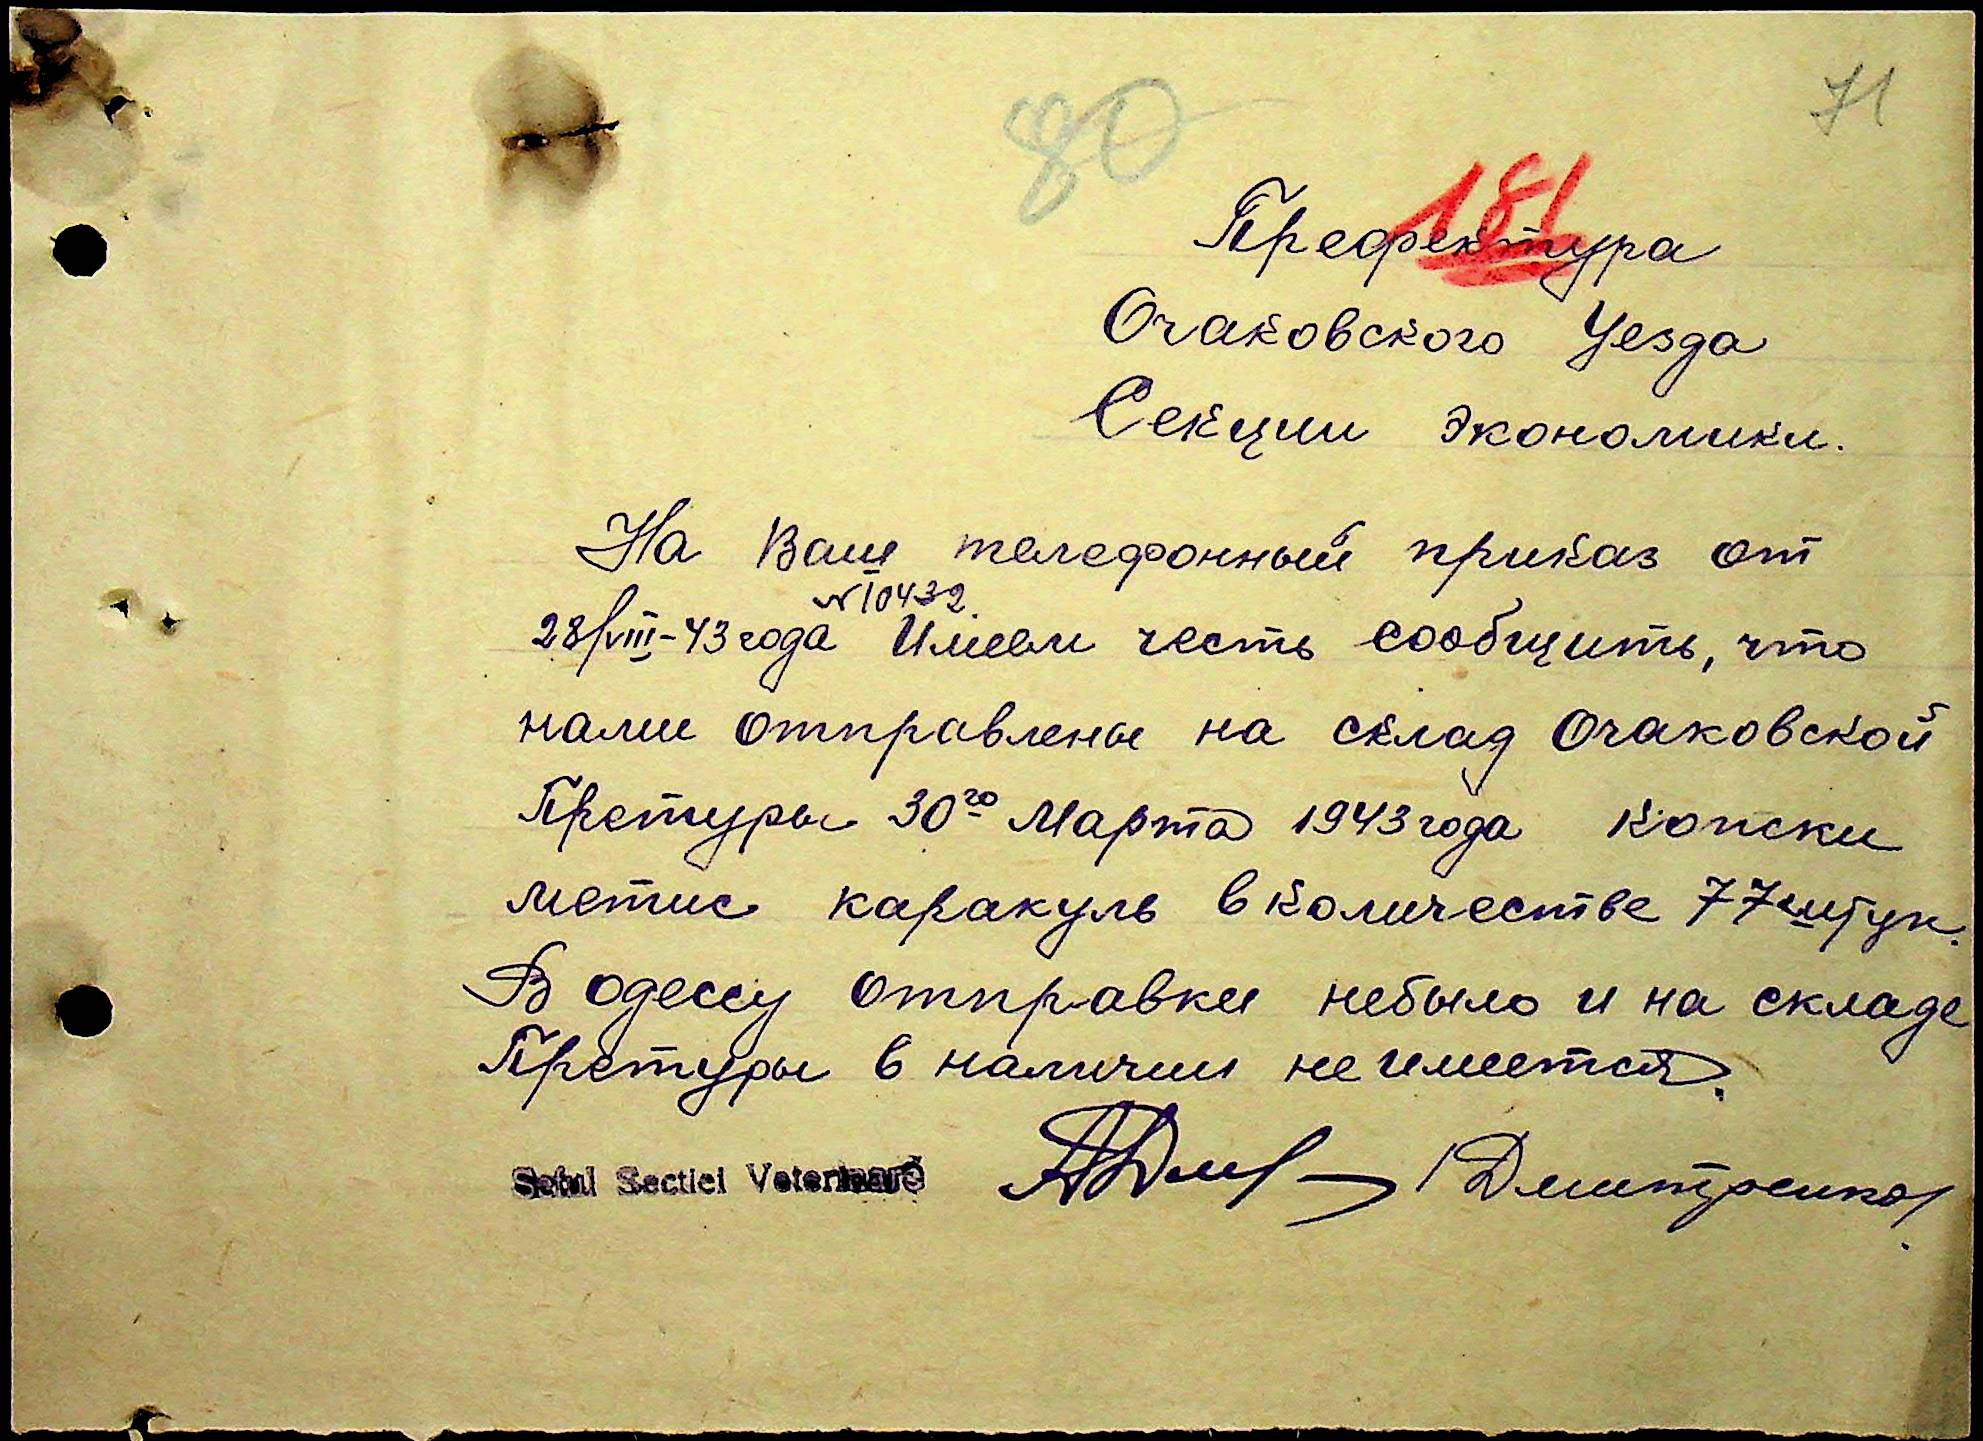 80
71
181
Префектура
Очаковского Уезда
Секции Экономики.
На Ваш телефонный приказ от
№10432
28/VIII-43 года Имеем честь сообщить, что
нами отправлены на склад Очаковской
Претуры 30го Марта 1943 года копски
метис каракуль в количестве 77 штук.
В одессу отправки небыло и на складе
Претуры в наличии не имеется.
Seful Sectiei Veterinare /Дмитренко/